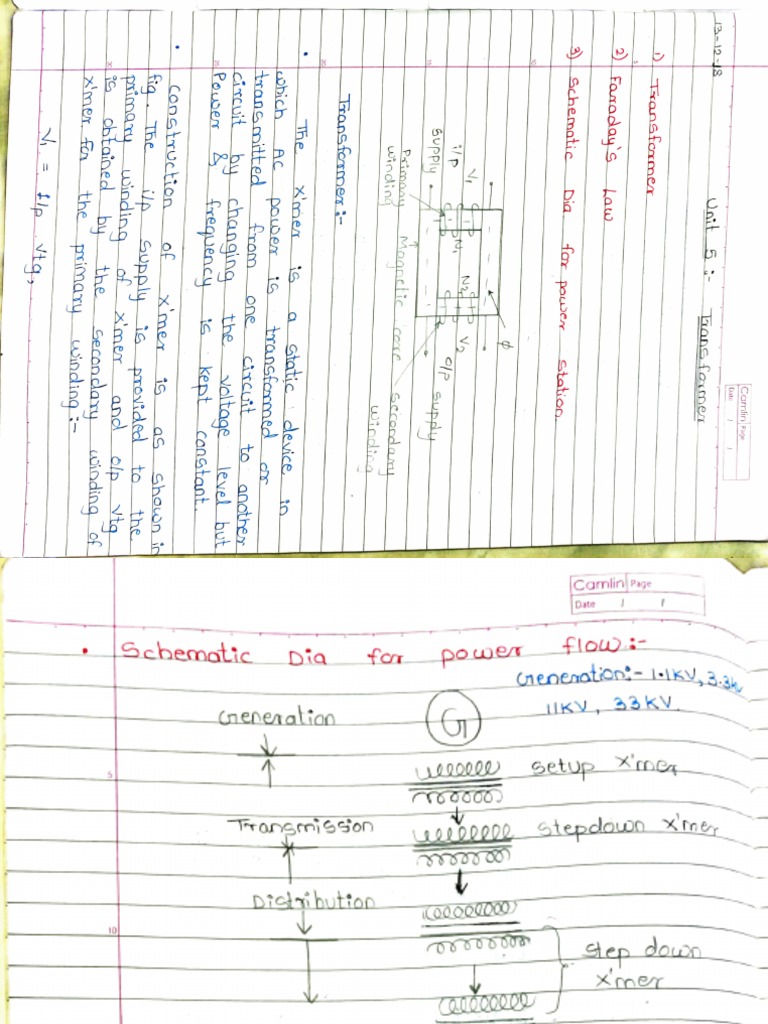 Camlin Page
Date / /
13-12-18
Unit 5 :- Transformer
1) Transformer
2) Faraday's Law
3) Schematic Dia for power station.
φ
V1 N1 N2 V2
i/p supply
o/p supply
primary winding
Magnetic core
secondary winding
Transformer:-
• The x'mer is a static device in
which AC power is transformed or
transmitted from one circuit to another
circuit by changing the voltage level but
Power & frequency is kept constant.
• Construction of x'mer is as shown in
fig. The i/p supply is provided to the
primary winding of x'mer and o/p vtg
is obtained by the secondary winding of
x'mer for the primary winding:-
V1 = i/p vtg,
Camlin Page
Date / /
• Schematic Dia for power flow:-
Generation:- 1.1KV, 3.3kv
11KV, 33KV.
Generation
G
5
setup x'mer
Transmission
stepdown x'mer
Distribution
10
step down
x'mer